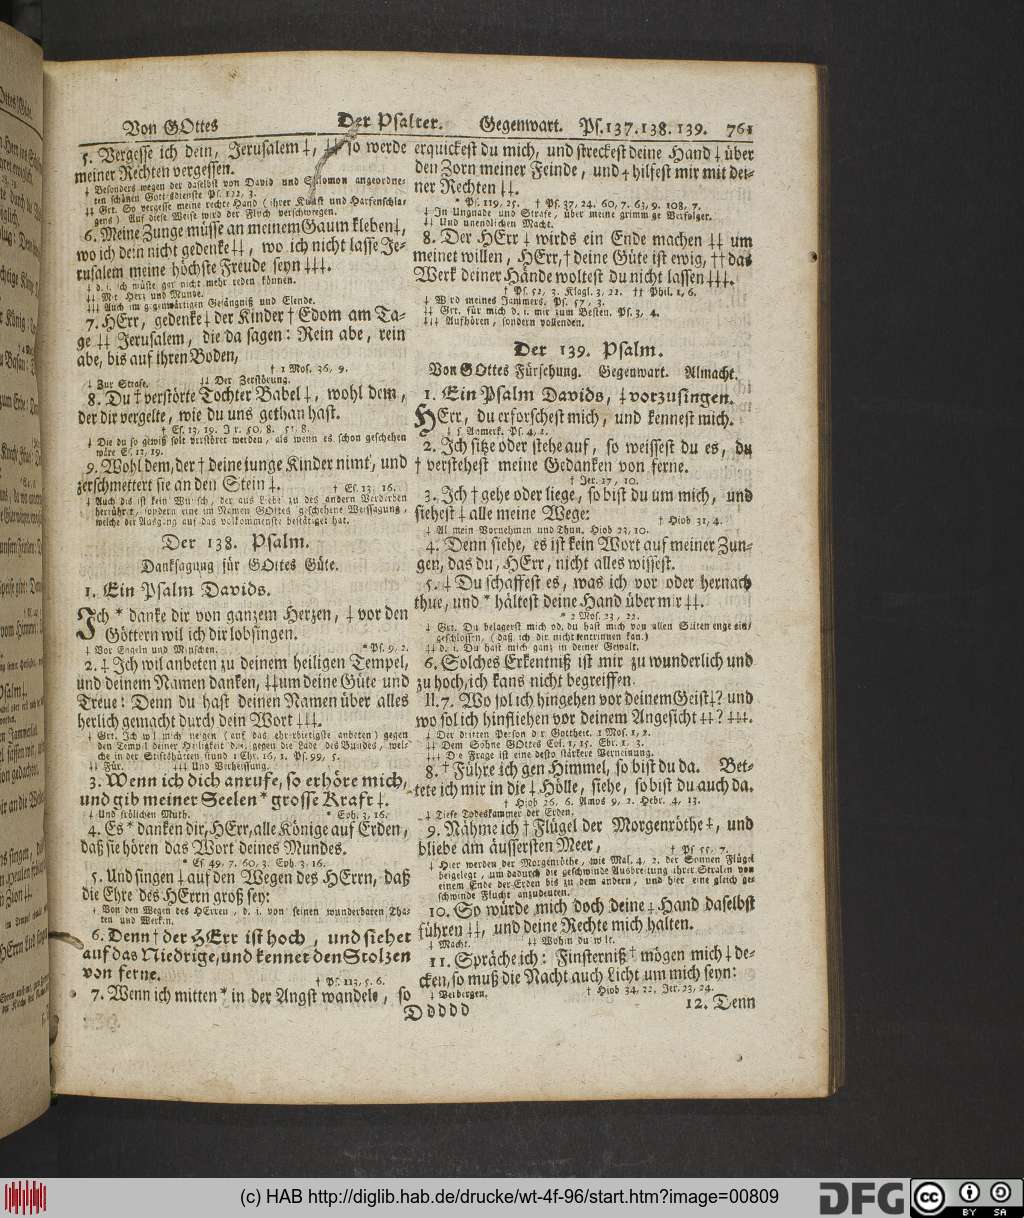 Von GOttes Der Psalter. Gegenwart. Ps. 137. 138. 139. 761
5. Vergesse ich dein, Jerusalem ‡, ‡‡ so werde
meiner Rechten vergessen.
‡ Besonders wegen der daselbst von David und Salomon angeordne-
ten schönen Gottesdienste Ps. 122, 3.
‡‡ Grt. So vergesse meine rechte Hand (ihrer Kunst und Harfenschla-
gens) Auf diese Weise wird der Fluch verschwiegen.
6. Meine Zunge müsse an meinem Gaum kleben ‡,
wo ich dein nicht gedenke ‡‡, wo ich nicht lasse Je-
rusalem meine höchste Freude seyn ‡‡‡.
‡ d. i. ich müsse gar nicht mehr reden können.
‡‡ Mit Herz und Munde.
‡‡‡ Auch im gegenwärtigen Gefängniß und Elende.
7. HErr, gedenke ‡ der Kinder † Edom am Ta-
ge ‡‡ Jerusalem, die da sagen: Rein abe, rein
abe, bis auf ihren Boden,
† 1 Mos. 36, 9.
‡ Zur Strafe. ‡‡ Der Zerstörung.
8. Du † verstörte Tochter Babel ‡, wohl dem,
der dir vergelte, wie du uns gethan hast.
† Es. 13, 19. Jer. 50, 8. 51, 8.
‡ Die du so gewiß solt verstöret werden, als wenn es schon geschehen
wäre Es. 13, 19.
9. Wohl dem, der † deine junge Kinder nimt, und
zerschmettert sie an den Stein ‡.
† Es. 13, 16.
‡ Auch dis ist kein Wunsch, der aus Liebe zu des andern Verderben
herrühret, sondern eine im Namen GOttes geschehene Weissagung,
welche der Ausgang auf das volkommenste bestätiget hat.
Der 138. Psalm.
Danksagung für GOttes Güte.
1. Ein Psalm Davids.
Ich * danke dir von ganzem Herzen, ‡ vor den
Göttern wil ich dir lobsingen.
‡ Vor Engeln und Menschen. * Ps. 9, 2.
2. ‡ Ich wil anbeten zu deinem heiligen Tempel,
und deinem Namen danken, ‡‡ um deine Güte und
Treue: Denn du hast deinen Namen über alles
herlich gemacht durch dein Wort ‡‡‡.
‡ Grt. Ich wil mich neigen (auf das ehrerbietigste anbeten) gegen
den Tempel deiner Heiligkeit d. i. gegen die Lade des Bundes, wel-
che in der Stiftshütten stund 1 Chr. 16, 1. Ps. 99, 5.
‡‡ Für. ‡‡‡ Und Verheissung.
3. Wenn ich dich anrufe, so erhöre mich,
und gib meiner Seelen * grosse Kraft ‡.
‡ Und frölichen Muth. * Eph. 3, 16.
4. Es * danken dir, HErr, alle Könige auf Erden,
daß sie hören das Wort deines Mundes.
* Es. 49, 7. 60, 3. Eph. 3, 16.
5. Und singen ‡ auf den Wegen des HErrn, daß
die Ehre des HErrn groß sey:
‡ Von den Wegen des HErren, d. i. von seinen wunderbaren Tha-
ten und Werken.
6. Denn † der HErr ist hoch, und siehet
auf das Niedrige, und kennet den Stolzen
von ferne.
† Ps. 113, 5. 6.
7. Wenn ich mitten * in der Angst wandele, so
Ddddd
erquickest du mich, und streckest deine Hand ‡ über
den Zorn meiner Feinde, und † hilfest mir mit dei-
ner Rechten ‡‡.
* Ps. 119, 25. † Ps. 37, 24. 60, 7. 63, 9. 108, 7.
‡ In Ungnade und Strafe, über meine grimmige Verfolger.
‡‡ Und unendlichen Macht.
8. Der HErr ‡ wirds ein Ende machen ‡‡ um
meinet willen, HErr, † deine Güte ist ewig, †† das
Werk deiner Hände woltest du nicht lassen ‡‡‡.
† Ps. 52, 3. Klagl. 3, 22. †† Phil. 1, 6.
‡ Wird meines Jammers. Ps. 57, 3.
‡‡ Grt. für mich d. i. mir zum Besten. Ps. 3, 4.
‡‡‡ Aufhören, sondern vollenden.
Der 139. Psalm.
Von GOttes Fürsehung. Gegenwart. Almacht.
1. Ein Psalm Davids, ‡ vorzusingen.
HErr, du erforschest mich, und kennest mich.
‡ s. Anmerk. Ps. 4, 1.
2. Ich sitze oder stehe auf, so weissest du es, du
† verstehest meine Gedanken von ferne.
† Jer. 17, 10.
3. Ich † gehe oder liege, so bist du um mich, und
siehest ‡ alle meine Wege:
† Hiob 31, 4.
‡ Al mein Vornehmen und Thun. Hiob 23, 10.
4. Denn siehe, es ist kein Wort auf meiner Zun-
gen, das du, HErr, nicht alles wissest.
5. ‡ Du schaffest es, was ich vor oder hernach
thue, und * hältest deine Hand über mir ‡‡.
* 2 Mos. 23, 22.
‡ Grt. Du belagerst mich od. du hast mich von allen Säiten enge ein-
geschlossen, (daß ich dir nicht entrinnen kan.)
‡‡ d. i. Du hast mich ganz in deiner Gewalt.
6. Solches Erkentniß ist mir zu wunderlich und
zu hoch, ich kans nicht begreiffen.
II. 7. Wo sol ich hingehen vor deinem Geist ‡? und
wo sol ich hinfliehen vor deinem Angesicht ‡‡? ‡‡‡.
‡ Der dritten Person der Gottheit. 1 Mos. 1, 2.
‡‡ Dem Sohne GOttes Col. 1, 15. Ebr. 1, 3.
‡‡‡ Die Frage ist eine desto stärkere Verneinung.
8. † Führe ich gen Himmel, so bist du da. Bet-
tete ich mir in die ‡ Hölle, siehe, so bist du auch da.
† Hiob 26, 6. Amos 9, 2. Hebr. 4, 13.
‡ Diese Todeskammer der Erden.
9. Nähme ich † Flügel der Morgenröthe ‡, und
bliebe am äussersten Meer,
† Ps. 55, 7.
‡ Hier werden der Morgenröthe, wie Mal. 4, 2. der Sonnen Flügel
beigelegt, um dadurch die geschwinde Ausbreitung ihrer Stralen von
einem Ende der Erden bis zu dem andern, und hier eine gleich ge-
schwinde Flucht anzudeuten.
10. So würde mich doch deine ‡ Hand daselbst
führen ‡‡, und deine Rechte mich halten.
‡ Macht. ‡‡ Wohin du wilt.
11. Spräche ich: Finsterniß † mögen mich ‡ de-
cken, so muß die Nacht auch Licht um mich seyn:
‡ Verbergen. † Hiob 34, 22. Jer. 23, 24.
12. Denn
(c) HAB http://diglib.hab.de/drucke/wt-4f-96/start.htm?image=00809
DFG
cc BY SA